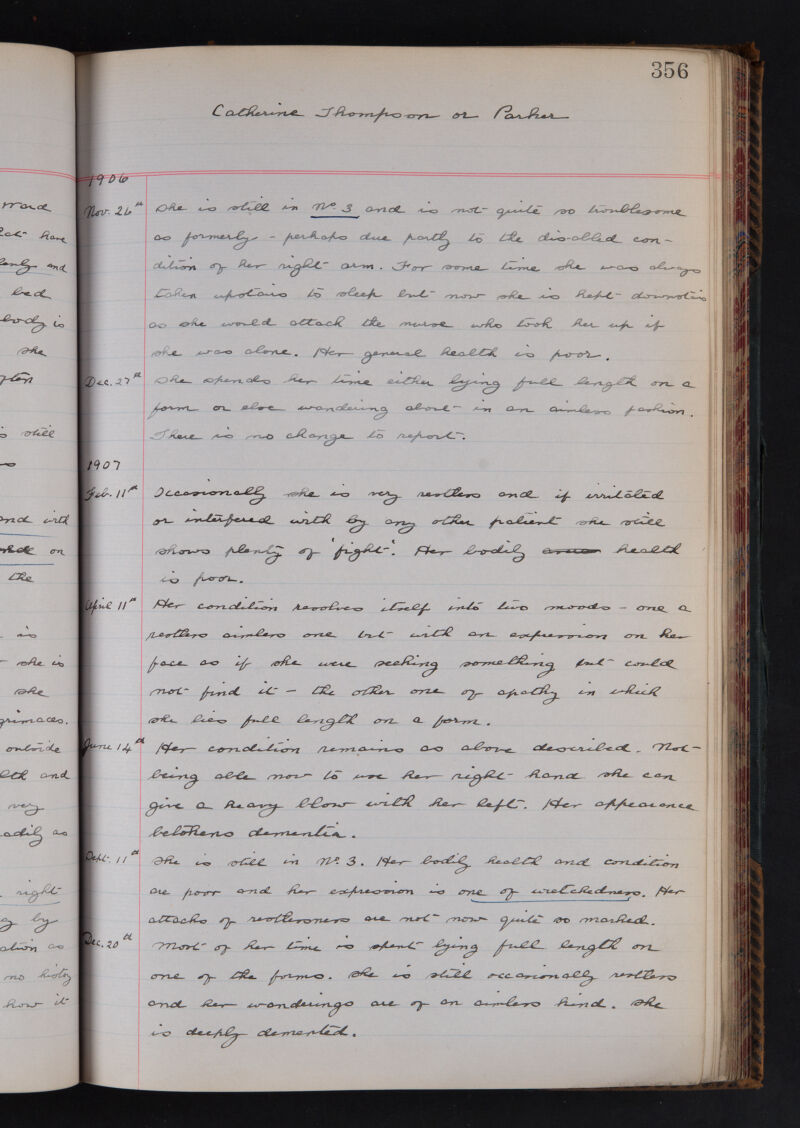 ward
have
and
bed
body is
she
often
still
and with
on
the
is
she is
she
grimaces.
outside
and
very
as
right
by
as
no history
how it
356
Catherine Thompson or Parker
1906
Nov. 26th She is still in No 3 and is not quite so troublesome
as formerly - perhaps due partly to the disabled con-
dition of her right arm. For some time she was always
taken upstairs to sleep but now she is kept downstairs
as she would attack the nurse who took her up if
she was alone. Her general health is poor.
Dec. 27th She spends her time either lying full length on a
form or else wandering about in an aimless fashion.
There is no change to report.
1907
Feb. 11th Occasionally she is very restless and if irritated
or interfered with by any other patient she still
shows plenty of 'fight'. Her bodily health
is poor.
April 11th Her condition resolves itself into two moods - one a
restless aimless one but with an expression on her
face as if she were seeking something but could
not find it - the other one of apathy in which
she lies full length on a form.
June 14th Her condition remains as above described. Not
being able now to use her right hand she can
give a heavy blow with her left. Her appearance
betokens dementia.
Sept. 11th She is still in No. 3. Her bodily health and condition
are poor and her expression is one of wretchedness. Her
attacks of restlessness are not now quite so marked.
Dec. 20th Most of her time is spent lying full length on
one of the forms. She is still occasionally restless
and her wanderings are of an aimless kind. She
is deeply demented.